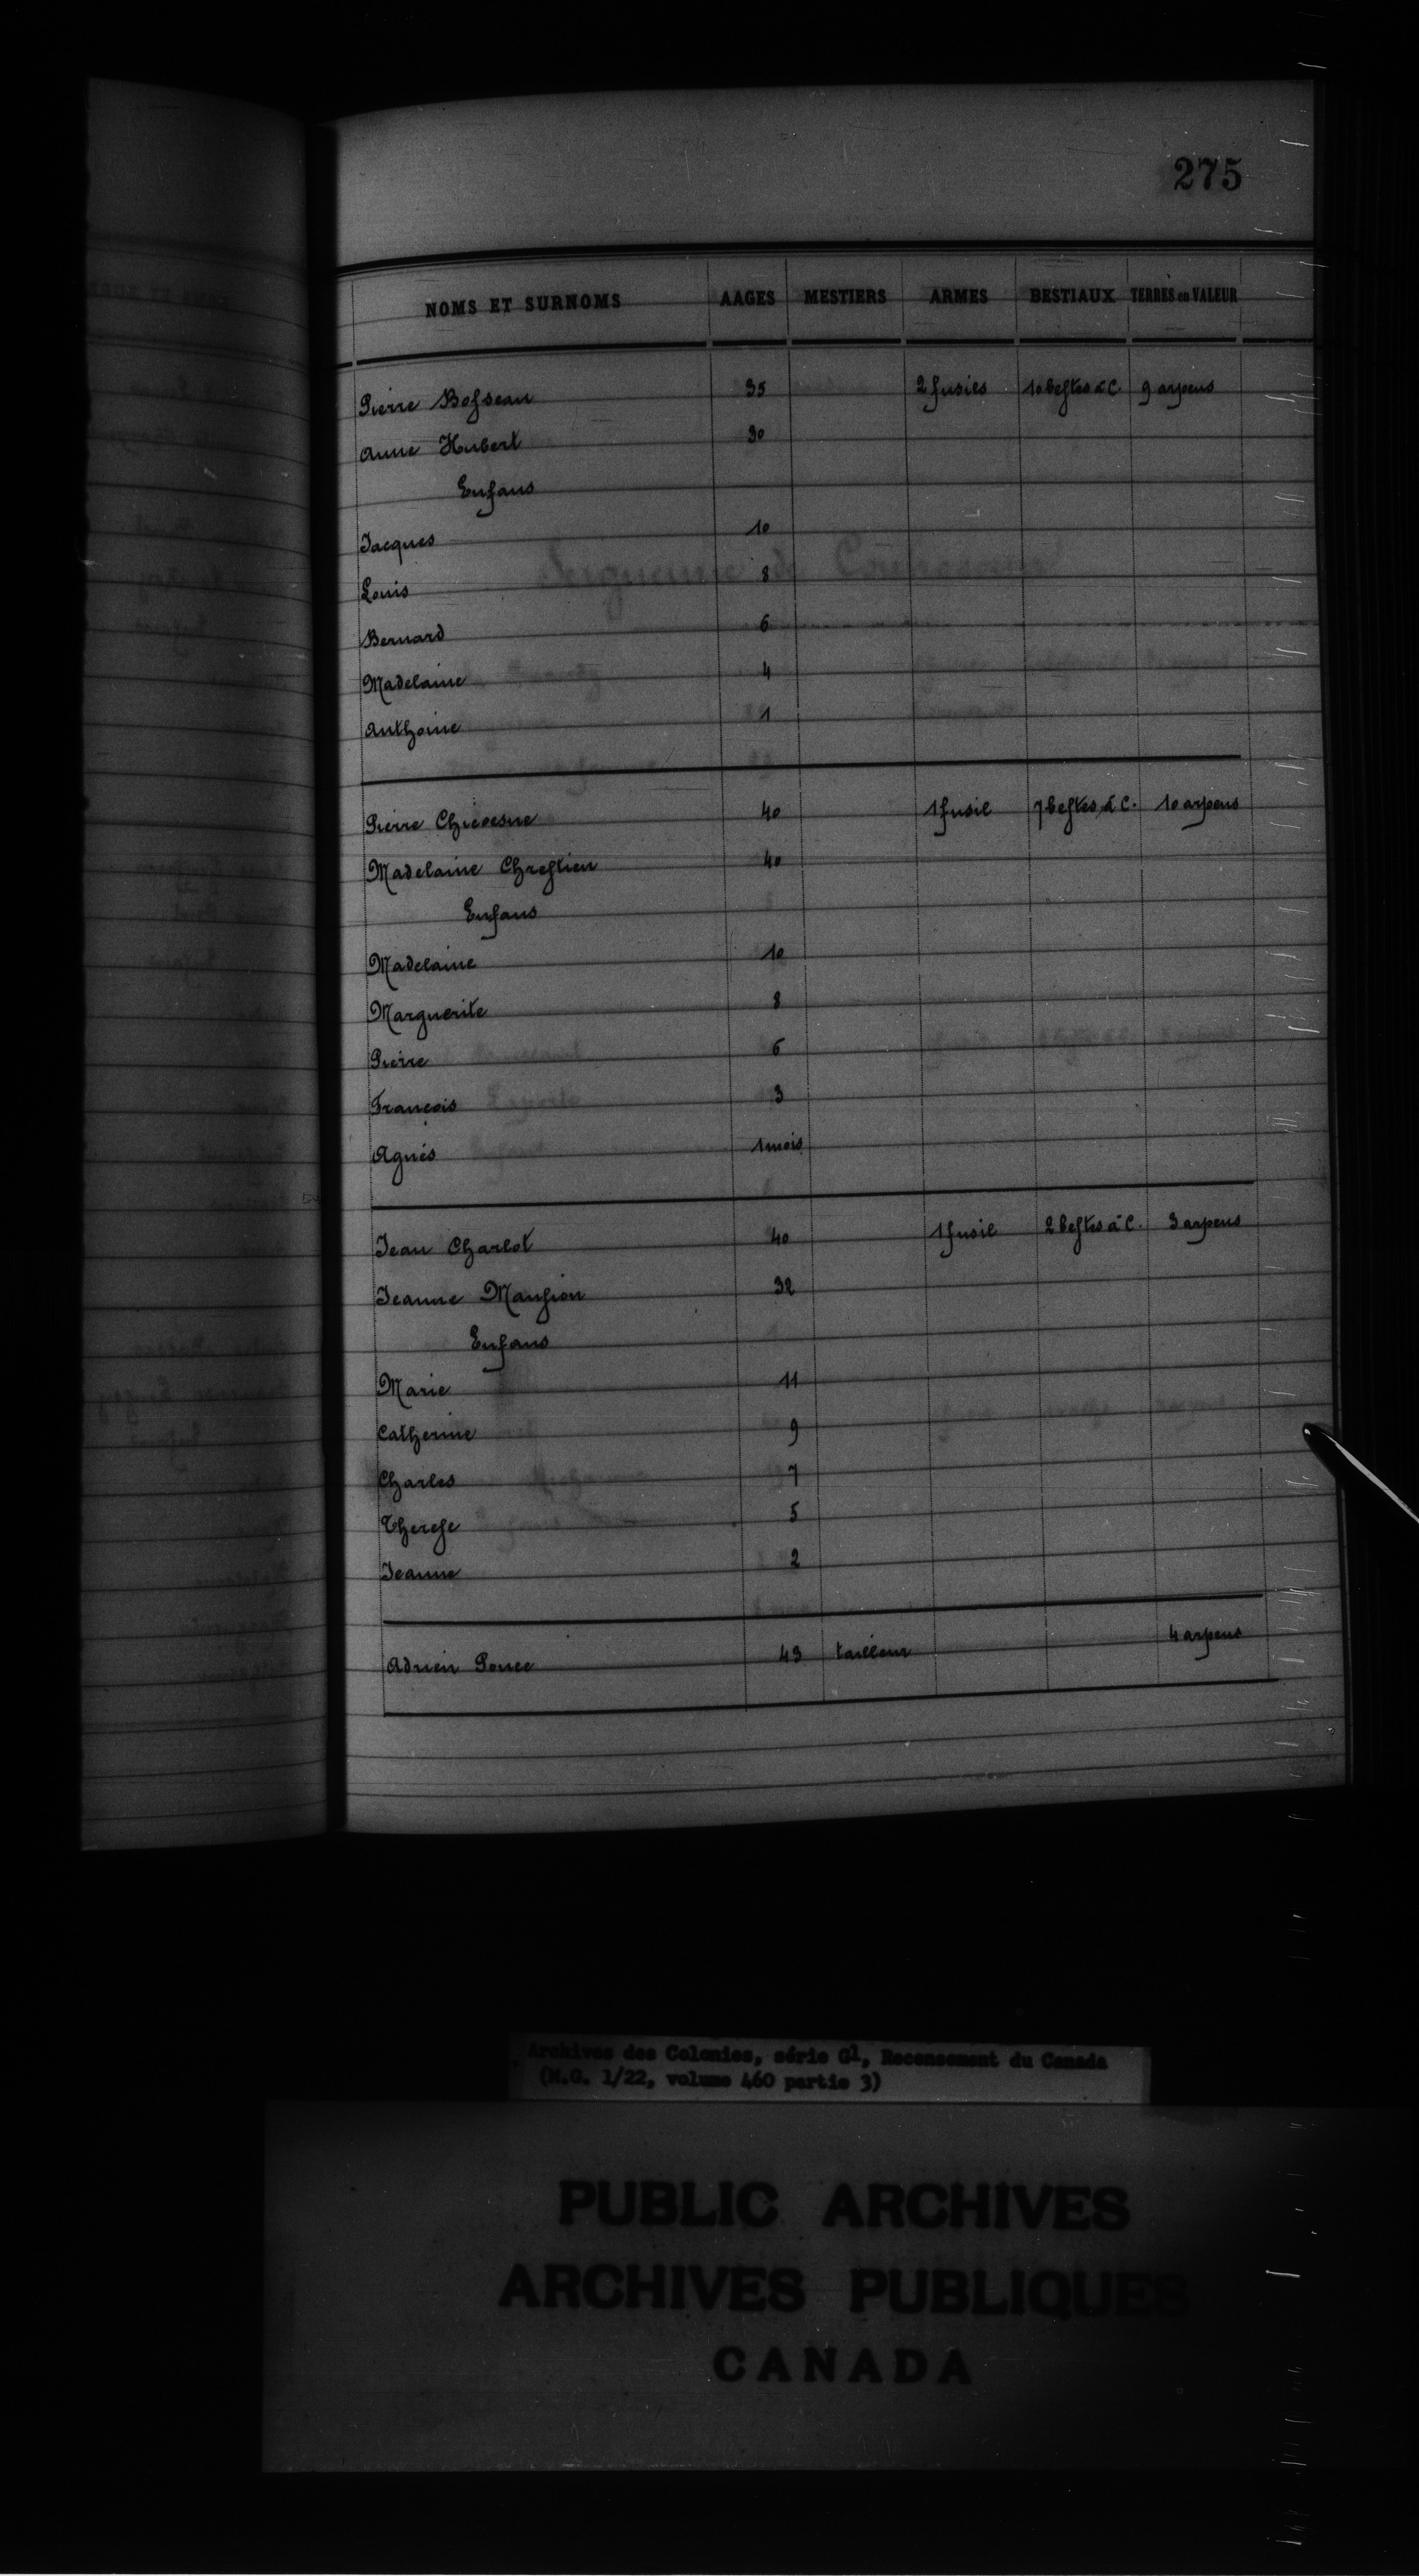 275
NOMS ET SURNOMS AAGES MESTIERS ARMES BESTIAUX TERRES en VALEUR
Pierre Bosseau 35 2 fusils 10 bestes à C. 9 arpens
Anne Hubert 30
Enfans
Jacques 10
Louis 8
Bernard 6
Madelaine 4
Anthoine 1
Pierre Chicoesne 40 1 fusil 7 bestes à C. 10 arpens
Madelaine Chrestien 40
Enfans
Madelaine 10
Marguerite 8
Pierre 6
Francois 3
Agnés 1 mois
Jean Charlot 40 1 fusil 2 bestes à C. 3 arpens
Jeanne Mansion 32
Enfans
Marie 11
Catherine 9
Charles 7
Therese 5
Jeanne 2
Adrien Ponce 43 tailleur 4 arpens
Archives des Colonies, série G1, Recensement du Canada
(M.G. 1/22, volume 460 partie 3)
PUBLIC ARCHIVES
ARCHIVES PUBLIQUES
CANADA